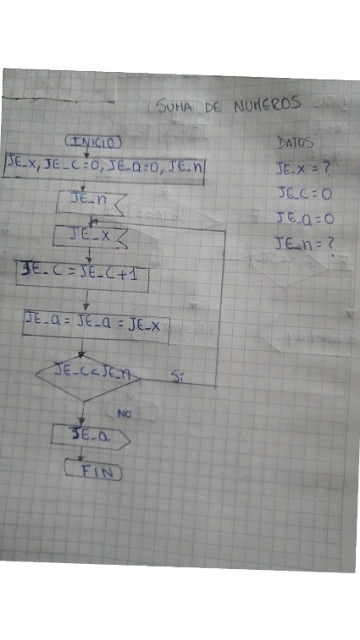 SUMA DE NUMEROS
INICIO
JE_x, JE_c=0, JE_a=0, JE_n
JE_n
JE_x
JE_c = JE_c+1
JE_a = JE_a = JE_x
JE_c < JE_n
Si
NO
JE_a
FIN
DATOS
JE_x = ?
JE_c = 0
JE_a = 0
JE_n = ?